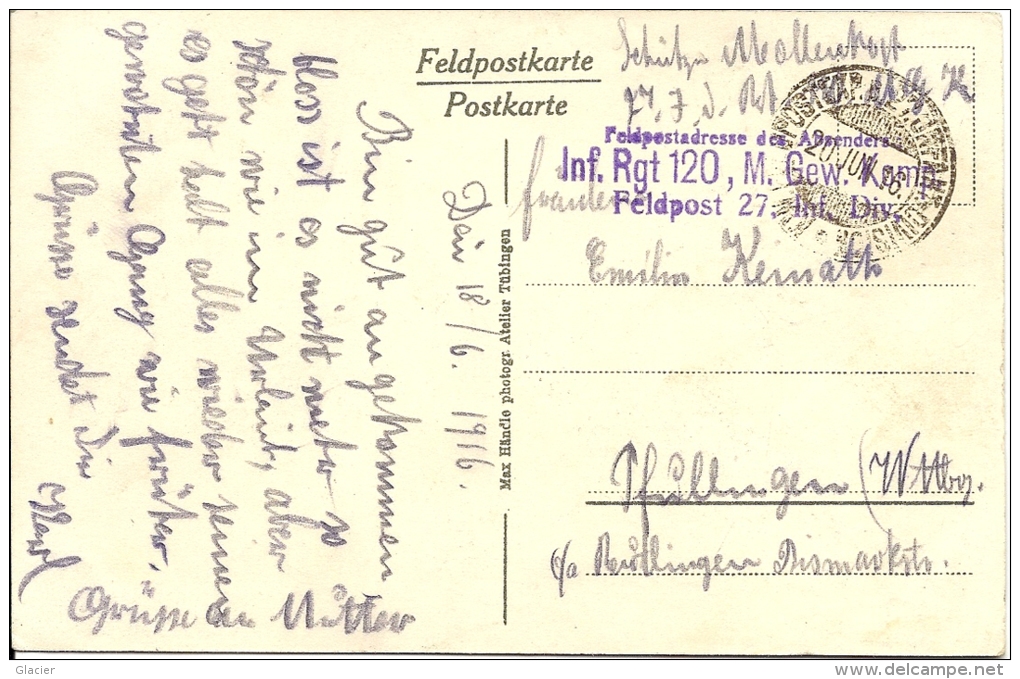 Feldpostkarte
Postkarte
Schütze Mollenkopf
27. I. D. Rt.
Feldpostadresse des Absenders
Inf. Rgt 120, M. Gew. Komp.
Feldpost 27. Inf. Div.
20 JUN
Fräulein
Emilie Kemath
Pfullingen (Wttbg.
c/a Reutlingen Bismarckstr.
Max Händle photogr. Atelier Tübingen
Den 18/6. 1916.
Bin gut angekommen
blos ist es nicht mehr so
schön wie im Urlaub, aber
es geht halt alles wieder seinen
gewohnten Gang wie früher.
Grüsse sendet Dir
Karl
Grüsse an Mutter
Glacier
www.delcampe.net